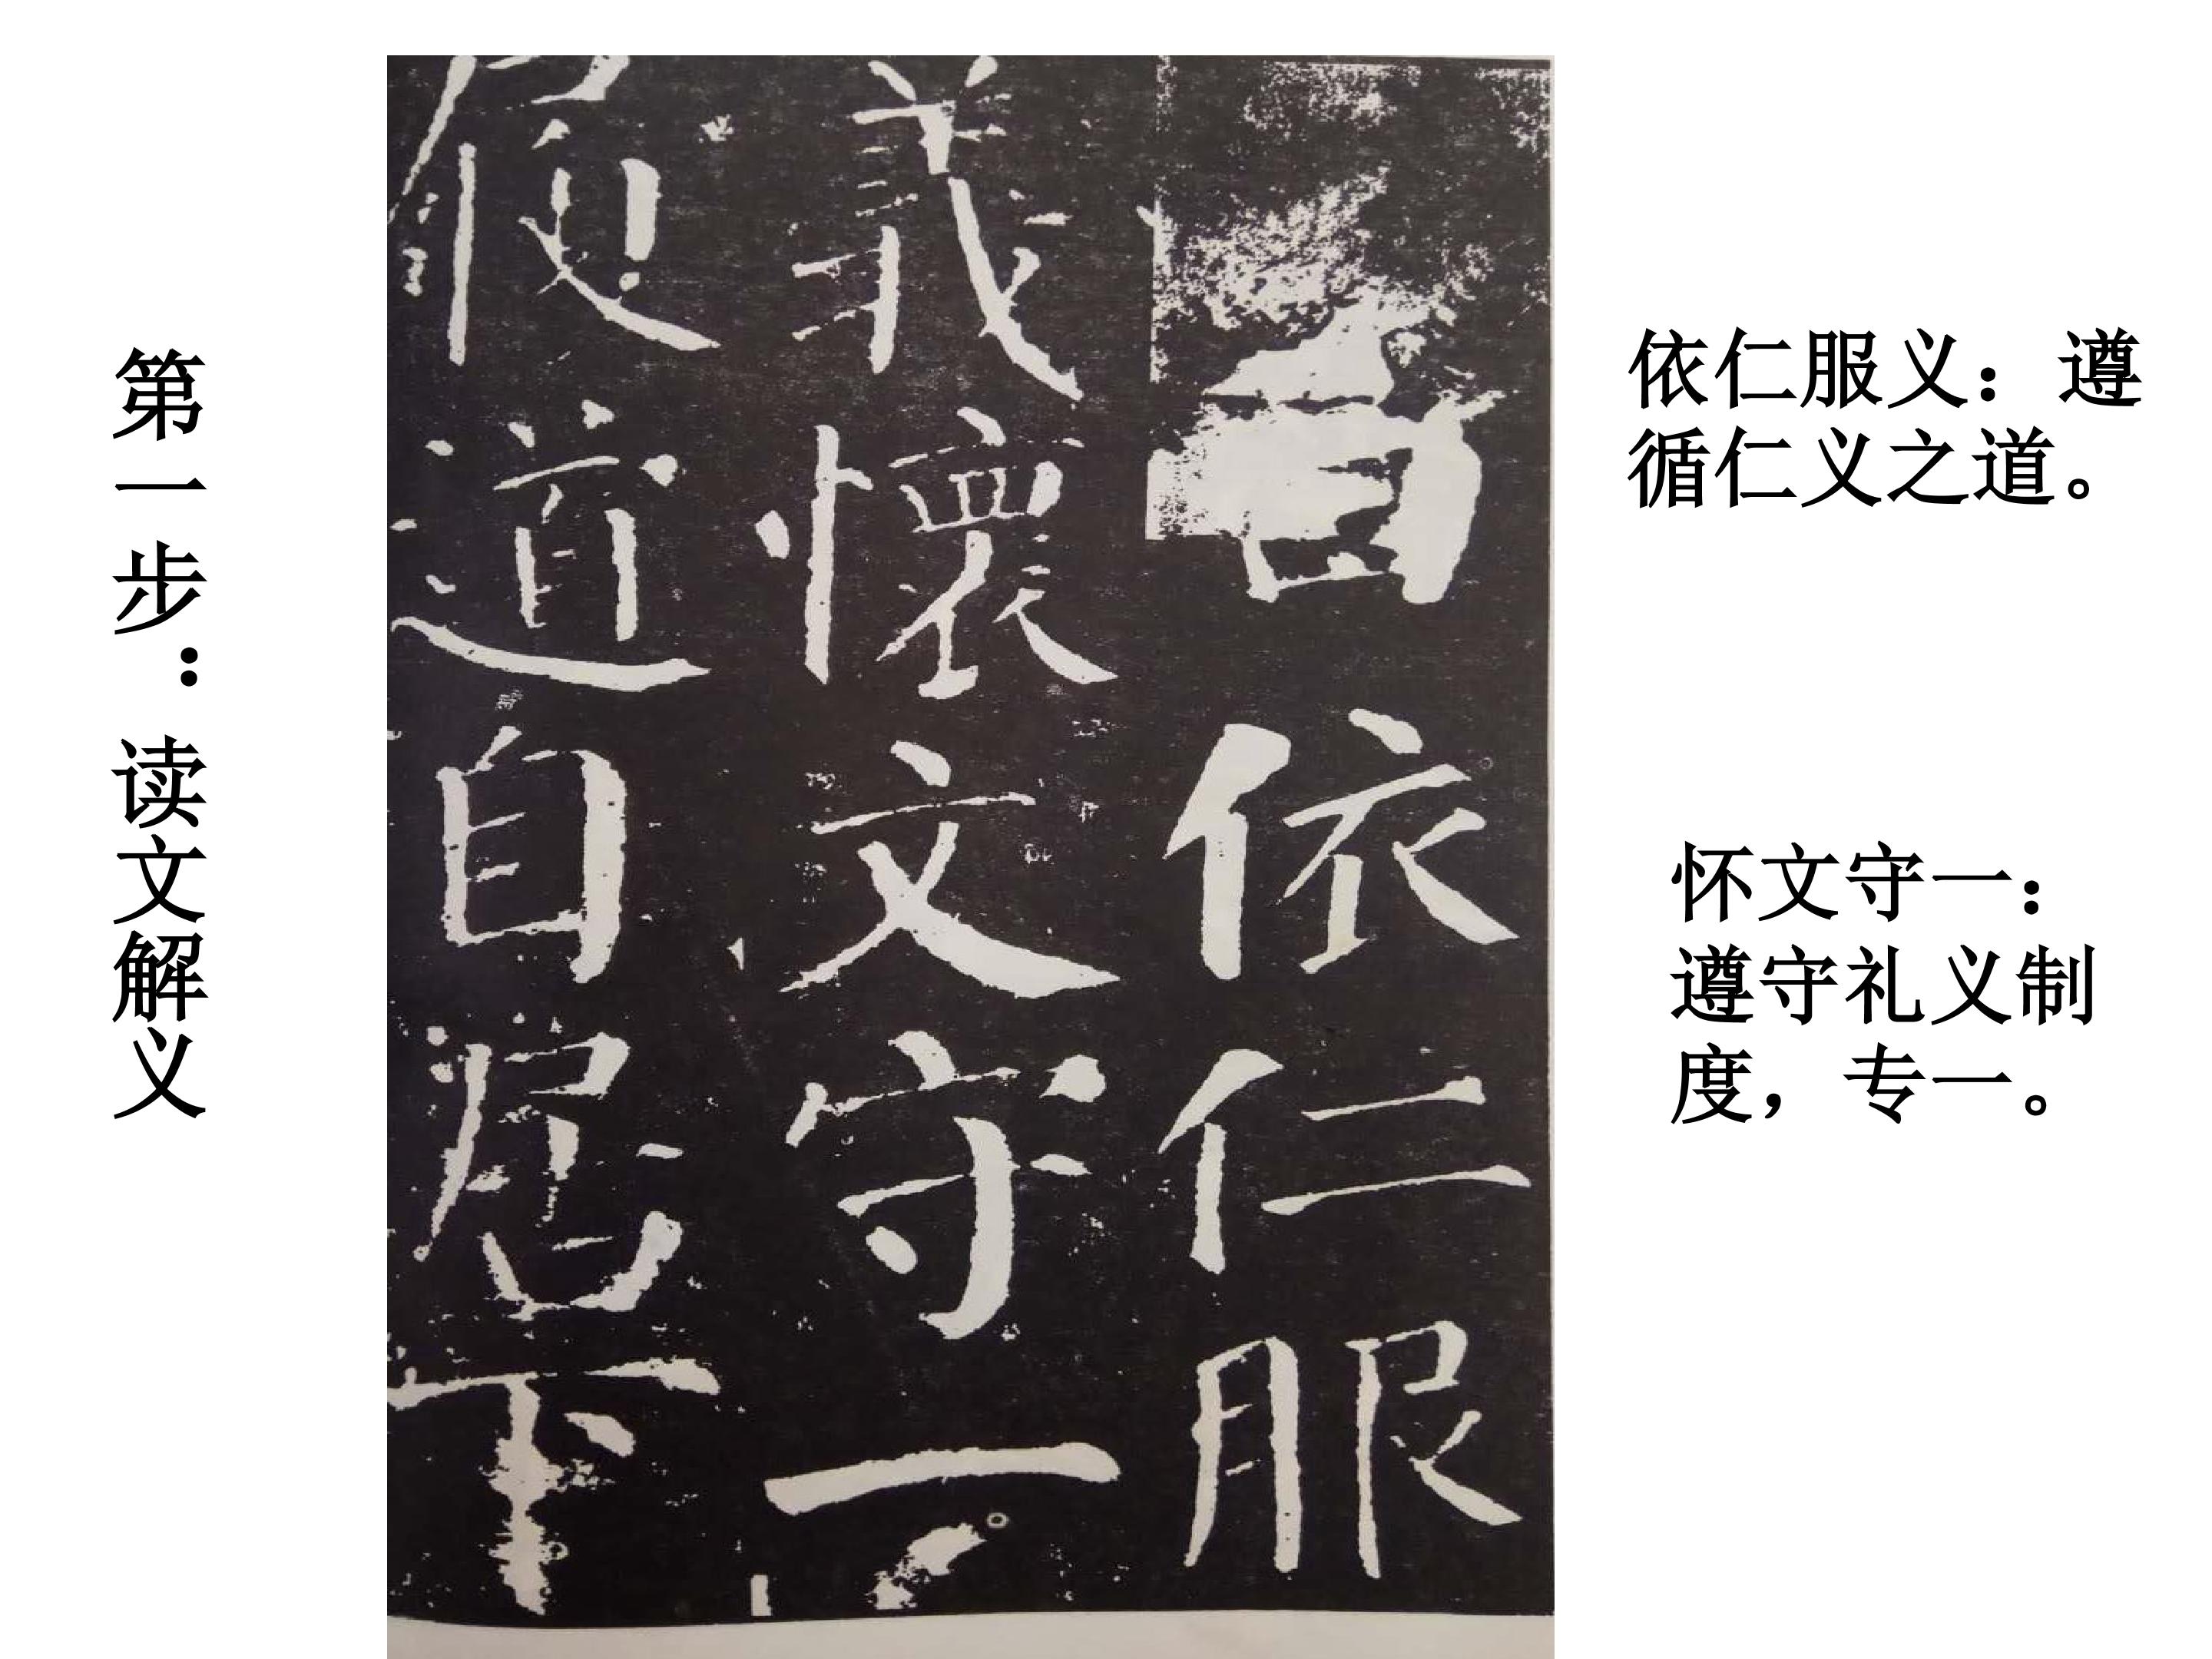 第一步：读文解义
依仁服
義懷文守一
履道自居下
依仁服义：遵
循仁义之道。
怀文守一：
遵守礼义制
度，专一。